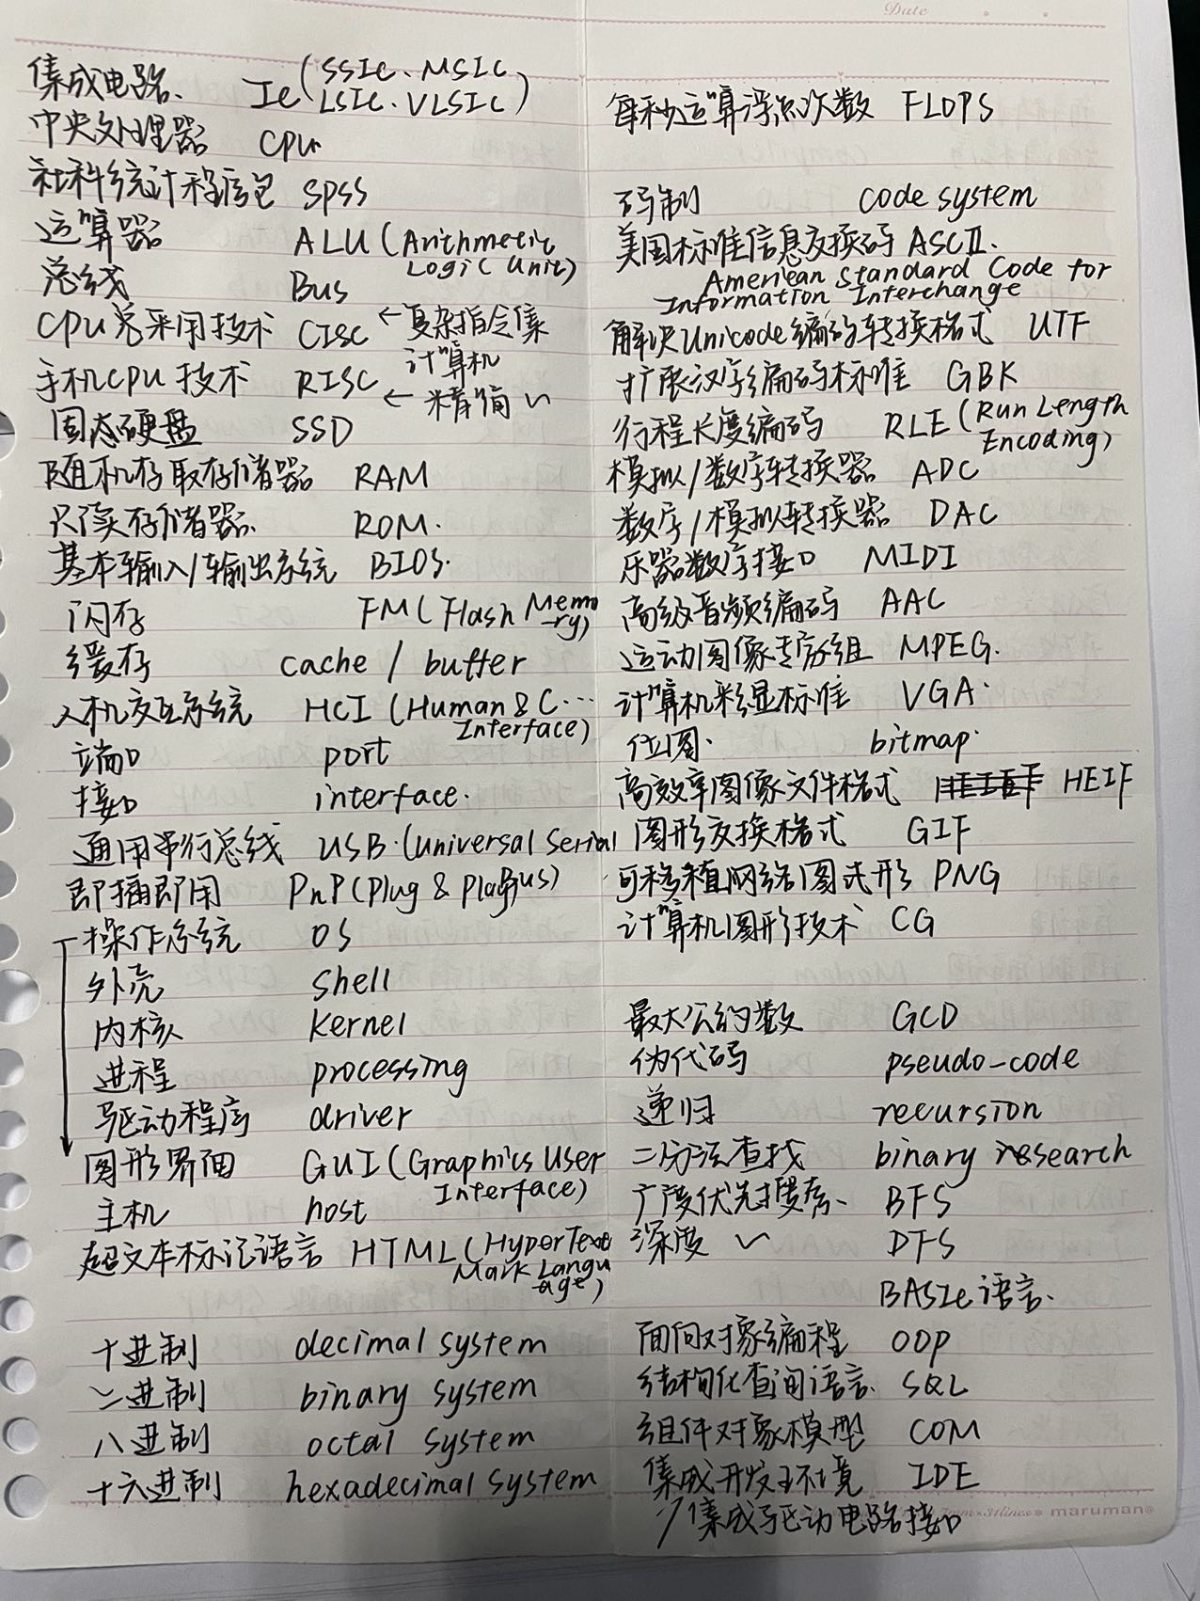 Date
集成电路、 IC(SSIC、MSIC
LSIC、VLSIC)
中央处理器 CPU
社科统计程序包 SPSS
运算器 ALU (Arithmetic
Logic Unit)
总线 Bus
CPU总采用技术 CISC ←复杂指令集
计算机
手机CPU技术 RISC ← 精简 〃
固态硬盘 SSD
随机存取存储器 RAM
只读存储器. ROM.
基本输入/输出系统 BIOS.
闪存 FM(Flash Memo
-ry)
缓存 cache / buffer
人机交互系统 HCI (Human & C...
Interface)
端口 port
接口 interface.
通用串行总线 USB.(Universal Serial
Bus)
即插即用 PnP(Plug & Play)
操作系统 OS
外壳 shell
内核 kernel
进程 processing
驱动程序 driver
图形界面 GUI(Graphics User
Interface)
主机 host
超文本标记语言 HTML(HyperText
Mark Langu
-age)
十进制 decimal system
二进制 binary system
八进制 octal system
十六进制 hexadecimal system
每秒运算浮点次数 FLOPS
码制 code system
美国标准信息交换码 ASCII.
American Standard Code for
Information Interchange
解决Unicode编码转换格式 UTF
扩展汉字编码标准 GBK
行程长度编码 RLE(Run Length
Encoding)
模拟/数字转换器 ADC
数字/模拟转换器 DAC
乐器数字接口 MIDI
高级音频编码 AAC
运动图像专家组 MPEG.
计算机彩显标准 VGA.
位图. bitmap.
高效率图像文件格式 HEIF
图形交换格式 GIF
可移植网络图式形 PNG
计算机图形技术 CG
最大公约数 GCD
伪代码 pseudo-code
递归 recursion
二分法查找 binary research
广度优先搜索、 BFS
深度 〃 DFS
BASIC语言.
面向对象编程 OOP
结构化查询语言. SQL
组件对象模型 COM
集成开发环境 IDE
/集成驱动电路接口
maruman